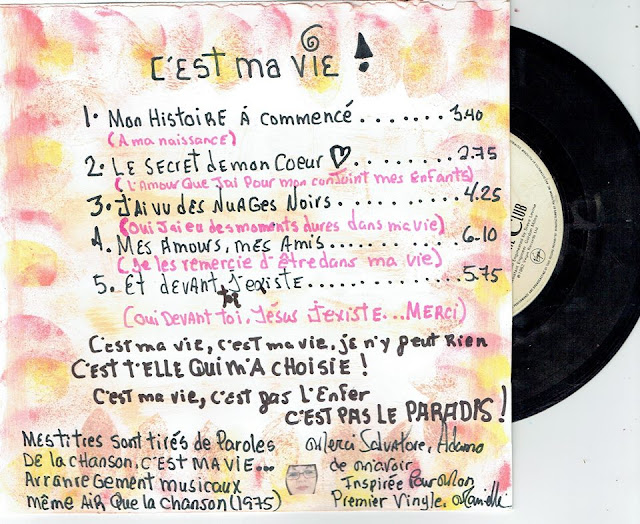 C'EST ma VIE !
1. Mon HISTOIRE À commencé ........ 3.40
(A ma naissance)
2. LE SECRET DE mon COEUR ♡ ........ 2.75
(L'Amour Que J'ai Pour mon conjoint mes Enfants)
3. J'AI VU DES NUAGES NOIRS ........ 4.25
(Oui J'ai eu des moments dures dans ma vie)
4. MES AMOURS, MES AMIS ........ 6.10
(Je les remercie d'être dans ma vie)
5. Et DEVANT toi J'EXISTE ........ 5.75
(Oui Devant toi, Jésus J'EXISTE...MERCI)
C'est ma vie, c'est ma vie, je n'y peut Rien
C'EST T'ELLE QUI M'A CHOISIE !
C'est ma vie, c'est pas L'Enfer
C'EST PAS LE PARADIS !
Mes titres sont tirés de Paroles
DE la chanson, C'EST MA VIE...
Arranregement musicaux
même Air Que la Chanson (1975)
Merci Salvatore, Adamo
de m'avoir
Inspirée Pour Mon
Premier Vingle,
CLUB
Virgin